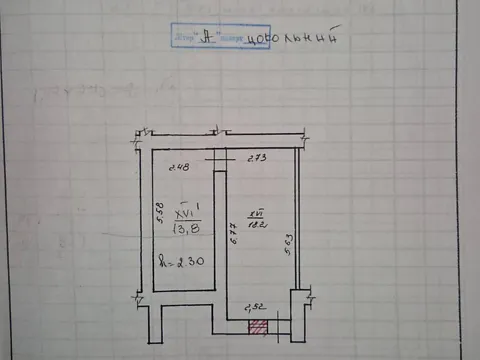 Літер "А" поверх цокольний
2.48
2.73
XVI¹
13,8
5.58
XVI
18.2
6.77
5.63
h=2.30
2,52